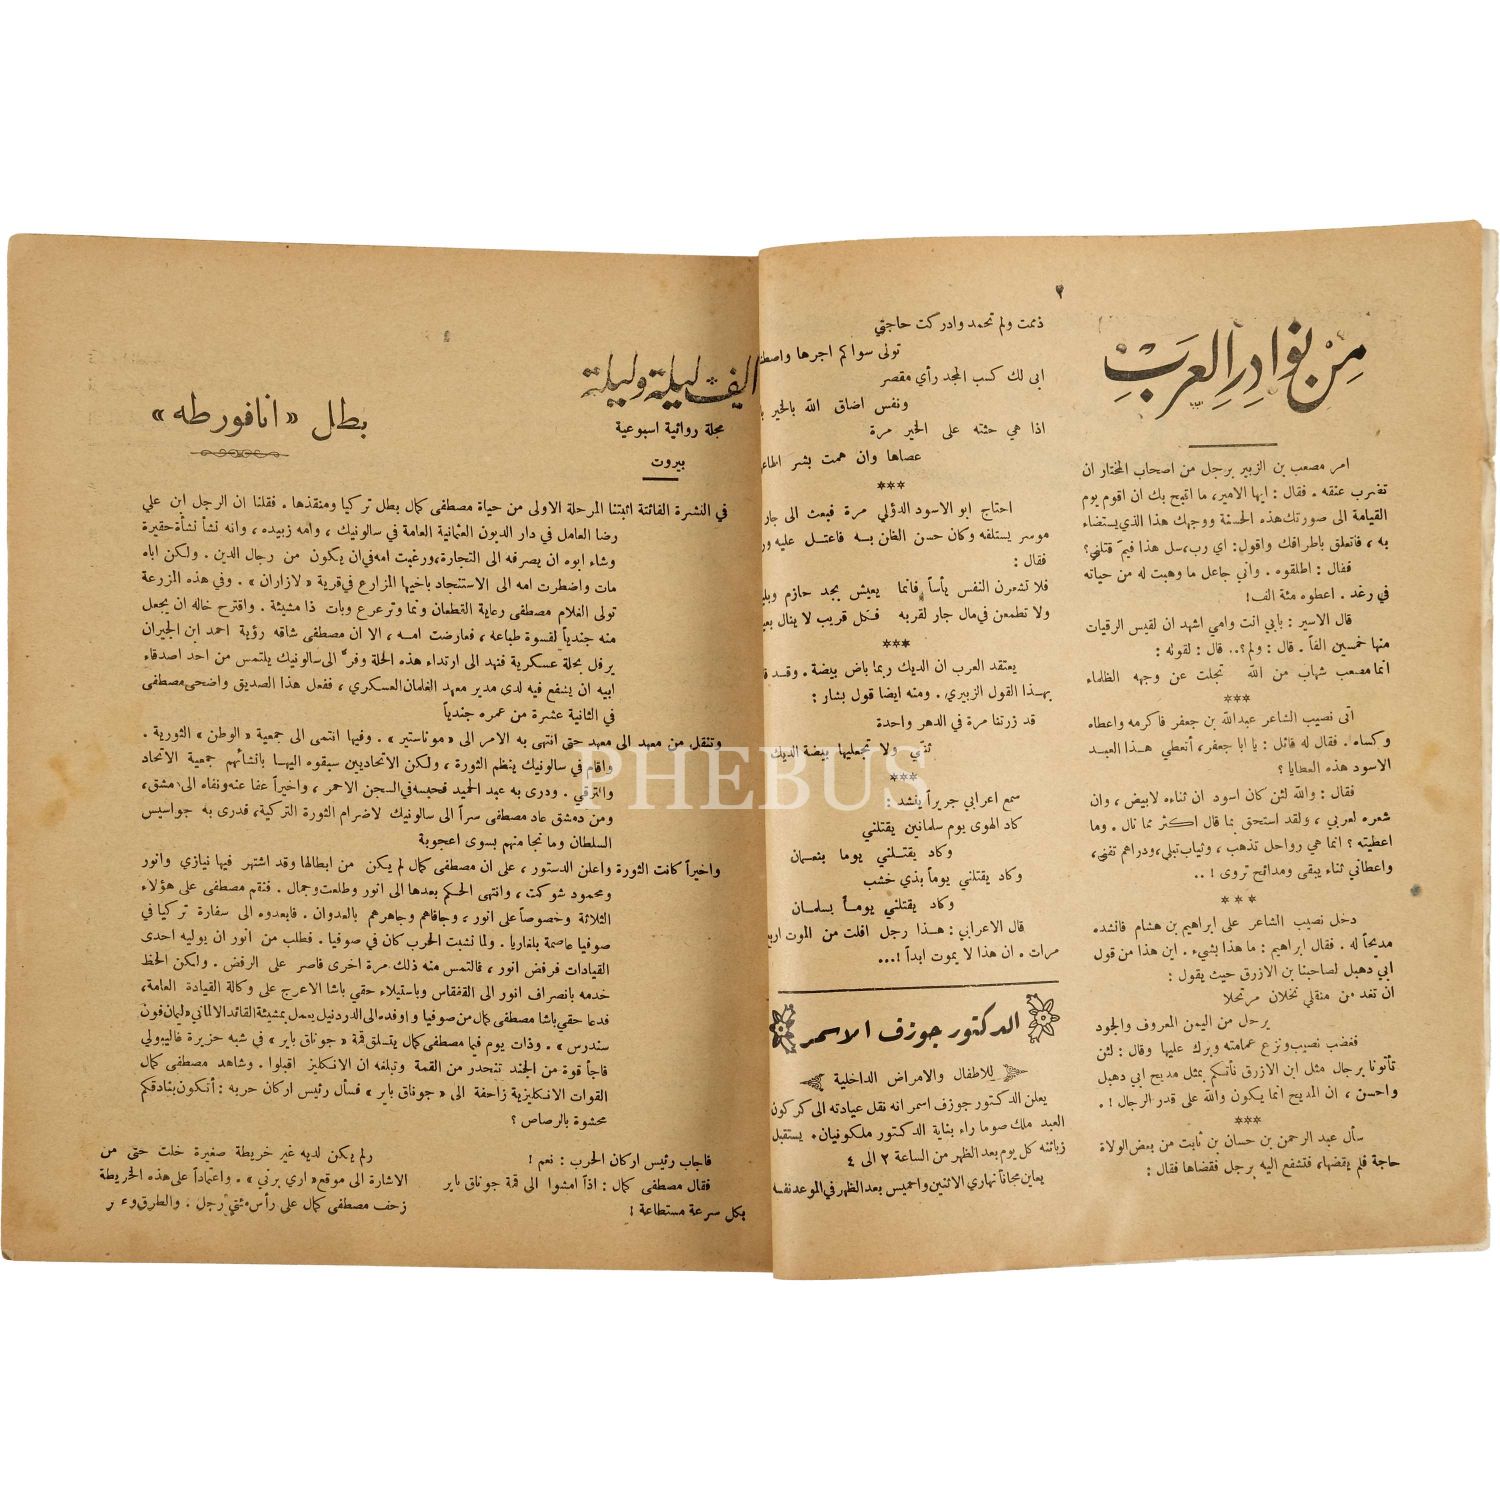 ٢
من نوادر العرب
امر مصعب بن الزبير برجل من اصحاب المختار ان
تضرب عنقه . فقال : ايها الامير، ما اقبح بك ان اقوم يوم
القيامة الى صورتك هذه الحسنة ووجهك هذا الذي يستضاء
به ، فاتعلق باطرافك واقول: اي رب، سل هذا فيمَ قتلني؟
فقال : اطلقوه . واني جاعل ما وهبت له من حياته
في رغد . اعطوه مئة الف!
قال الاسير : بابي انت وامي اشهد ان لقيس الرقيات
منها خمسين الفاً . قال : ولم؟.. قال : لقوله :
انما مصعب شهاب من الله تجلت عن وجهه الظلماء
***
اتى نصيب الشاعر عبدالله بن جعفر فاكرمه واعطاه
وكساه . فقال له قائل : يا ابا جعفر، أتعطي هذا العبد
الاسود هذه العطايا ؟
فقال : والله لئن كان اسود ان ثناءه لابيض ، وان
شعره لعربي ، ولقد استحق بما قال اكثر مما نال . وما
اعطيته ؟ انما هي رواحل تذهب ، وثياب تبلى، ودراهم تفنى،
واعطاني ثناء يبقى ومدائح تروى ! ..
***
دخل نصيب الشاعر على ابراهيم بن هشام فانشده
مديحاً له . فقال ابراهيم : ما هذا بشيء . اين هذا من قول
ابي دهبل لصاحبنا بن الازرق حيث يقول :
ان تغد من منقلي نخلان مرتحلا
يرحل من اليمن المعروف والجود
فغضب نصيب ونزع عمامته وبرك عليها وقال : لئن
تأتونا برجال مثل ابن الازرق نأتكم بمثل مديح ابي دهبل
واحسن ، ان المديح انما يكون والله على قدر الرجال ! .
***
سأل عبد الرحمن بن حسان بن ثابت من بعض الولاة
حاجة فلم يقضها، فتشفع اليه برجل فقضاها فقال :
ذممت ولم تحمد وادركت حاجتي
تولى سواكم اجرها
ابى لك كسب المجد رأي مقصر
ونفس اضاق الله بالخير
اذا هي حثته على الخير مرة
عصاها وان همت بشر
***
احتاج ابو الاسود الدؤلي مرة فبعث الى جار
موسر يستلفه وكان حسن الظن به فاعتل عليه
فقال :
فلا تشعرن النفس يأساً فانما يعيش بجد حازم
ولا تطمعن في مال جار لقربه فكل قريب لا ينال
***
يعتقد العرب ان الديك ربما باض بيضة . وقد
بهذا القول الزبيري . ومنه ايضا قول بشار :
قد زرتنا مرة في الدهر واحدة
ثني ولا تجعليها بيضة الديك
***
سمع اعرابي جريراً ينشد :
كاد الهوى يوم سلمانين يقتلني
وكاد يقتلني يوما بنعمان
وكاد يقتلني يوماً بذي خشب
وكاد يقتلني يوماً بسلمان
قال الاعرابي : هذا رجل افلت من الموت
مرات . ان هذا لا يموت ابداً !...
الدكتور جوزف الاسمر
للاطفال والامراض الداخلية
يعلن الدكتور جوزف اسمر انه نقل عيادته الى كركون
العبد ملك صوما راء بناية الدكتور ملكونيان . يستقبل
زبائنه كل يوم بعد الظهر من الساعة ٢ الى ٤
يعاين مجاناً نهاري الاثنين والخميس بعد الظهر في الموعد نفسه
الف ليلة وليلة
مجلة روائية اسبوعية
بيروت
بطل « انافورطه »
في النشرة الفائتة اثبتنا المرحلة الاولى من حياة مصطفى كمال بطل تركيا ومنقذها . فقلنا ان الرجل ابن علي
رضا العامل في دار الديون العثمانية العامة في سالونيك ، وامه زبيده ، وانه نشأ نشأة حقيرة
وشاء ابوه ان يصرفه الى التجارة، ورغبت امه في ان يكون من رجال الدين . ولكن اباه
مات واضطرت امه الى الاستنجاد باخيها المزارع في قرية « لازاران » . وفي هذه المزرعة
تولى الغلام مصطفى رعاية القطعان ونما وترعرع وبات ذا مشيئة . واقترح خاله ان يجعل
منه جندياً لقسوة طباعه ، فعارضت امه ، الا ان مصطفى شاقه رؤية احمد ابن الجيران
يرفل بحلة عسكرية فنهد الى ارتداء هذه الحلة وفرَّ الى سالونيك يلتمس من احد اصدقاء
ابيه ان يشفع فيه لدى مدير معهد الغلمان العسكري ، ففعل هذا الصديق واضحى مصطفى
في الثانية عشرة من عمره جندياً
وتنقل من معهد الى معهد حتى انتهى به الامر الى « موناستير » . وفيها انتمى الى جمعية « الوطن » الثورية .
واقام في سالونيك ينظم الثورة ، ولكن الاتحاديين سبقوه اليها بانشائهم جمعية الاتحاد
والترقي . ودرى به عبد الحميد فحبسه في السجن الاحمر ، واخيراً عفا عنه ونفاه الى دمشق،
ومن دمشق عاد مصطفى سراً الى سالونيك لاضرام الثورة التركية، فدرى به جواسيس
السلطان وما نجا منهم بسوى اعجوبة
واخيراً كانت الثورة واعلن الدستور ، على ان مصطفى كمال لم يكن من ابطالها وقد اشتهر فيها نيازي وانور
ومحمود شوكت ، وانتهى الحكم بعدها الى انور وطلعت وجمال . فنقم مصطفى على هؤلاء
الثلاثة وخصوصاً على انور ، وجافاهم وجاهرهم بالعدوان . فابعدوه الى سفارة تركيا في
صوفيا عاصمة بلغاريا . ولما نشبت الحرب كان في صوفيا . فطلب من انور ان يوليه احدى
القيادات فرفض انور ، فالتمس منه ذلك مرة اخرى فاصر على الرفض . ولكن الحظ
خدمه بانصراف انور الى القفقاس وباستيلاء حقي باشا الاعرج على وكالة القيادة العامة،
فدعا حقي باشا مصطفى كمال من صوفيا واوفده الى الدردنيل يعمل بمشيئة القائد الالماني « ليمان فون
سندرس » . وذات يوم فيما مصطفى كمال يتسلق قمة « جوناق باير » في شبه جزيرة غاليبولي
فاجأ قوة من الجند تنحدر من القمة وتبلغه ان الانكليز اقبلوا . وشاهد مصطفى كمال
القوات الانكليزية زاحفة الى « جوناق باير » فسأل رئيس اركان حربه : أتكون بنادقكم
محشوة بالرصاص ؟
فاجاب رئيس اركان الحرب : نعم !
فقال مصطفى كمال : اذاً امشوا الى قمة جوناق باير
بكل سرعة مستطاعة !
ولم يكن لديه غير خريطة صغيرة خلت حتى من
الاشارة الى موقع « اري برني » . واعتماداً على هذه الخريطة
زحف مصطفى كمال على رأس مئتي رجل . والطرق
PHEBUS